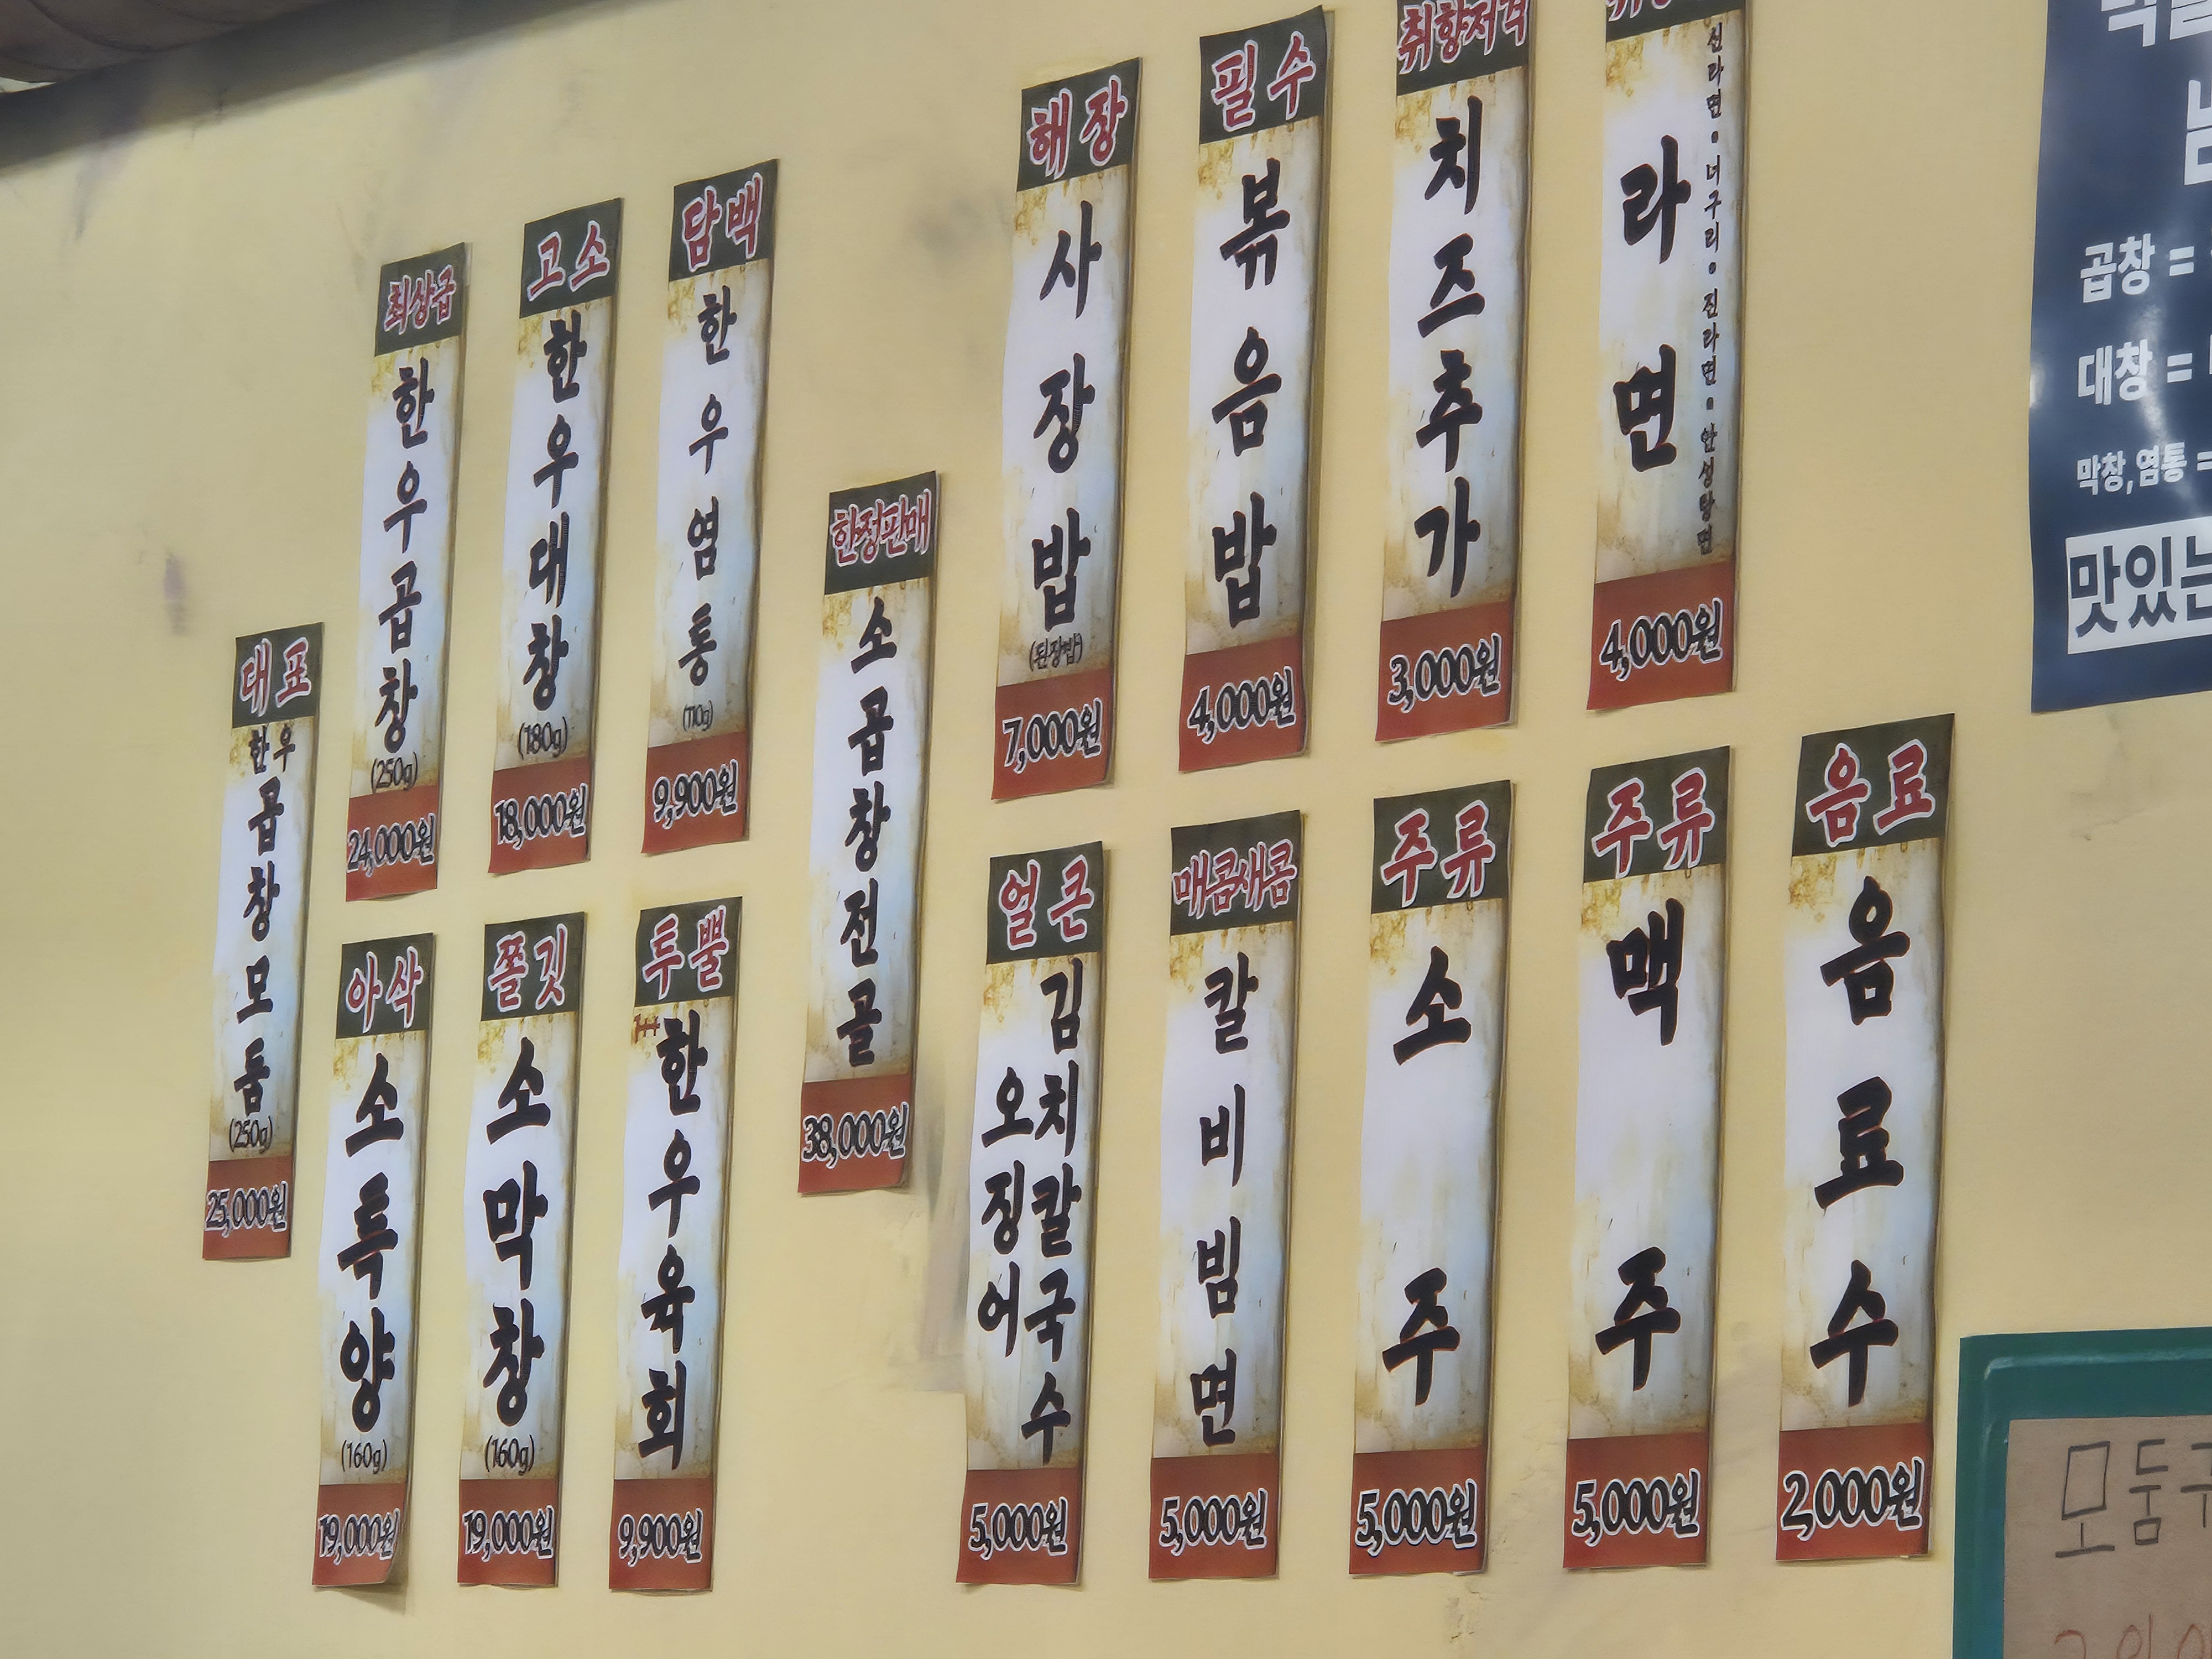 대표
한우
곱창모둠
(250g)
25,000원
최상급
한우곱창
(250g)
24,000원
고소
한우대창
(180g)
18,000원
담백
한우염통
(110g)
9,900원
아삭
소특양
(160g)
19,000원
쫄깃
소막창
(160g)
19,000원
투쁠
한우육회
9,900원
한정판매
소곱창전골
38,000원
해장
사장밥
(된장밥)
7,000원
필수
볶음밥
4,000원
취향저격
치즈추가
3,000원
신라면•너구리•진라면•안성탕면
라면
4,000원
얼큰
김치칼국수
오징어
5,000원
매콤새콤
칼비빔면
5,000원
주류
소주
5,000원
주류
맥주
5,000원
음료
음료수
2,000원
곱창 =
대창 =
막창,염통 =
맛있는
모둠